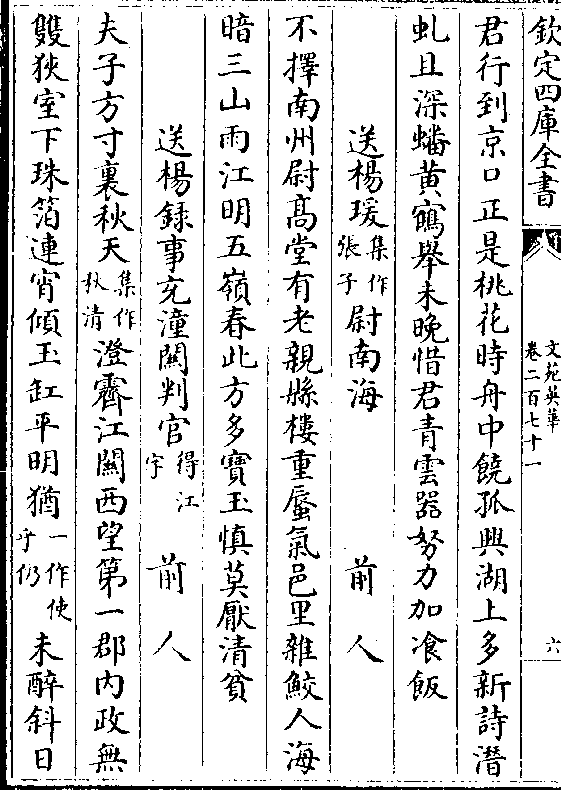 欽定四庫全書
文苑英華
卷二百七十一
六
君行到京口正是桃花時舟中饒孤興湖上多新詩潜
虬且深蟠黄鶴舉未晚惜君青雲器努力加飡飯
送楊瑗集作張子尉南海　前人
不擇南州尉髙堂有老親縣樓重蜃氣邑里雜鮫人海
暗三山雨江明五嶺春此方多寶玉慎莫厭清貧
送楊録事充潼關判官得江字　前人
夫子方寸裏秋天集作秋清澄霽江關西望第一郡内政無
雙狄室下珠箔連宵傾玉缸平明猶一作使乎仍未醉斜日